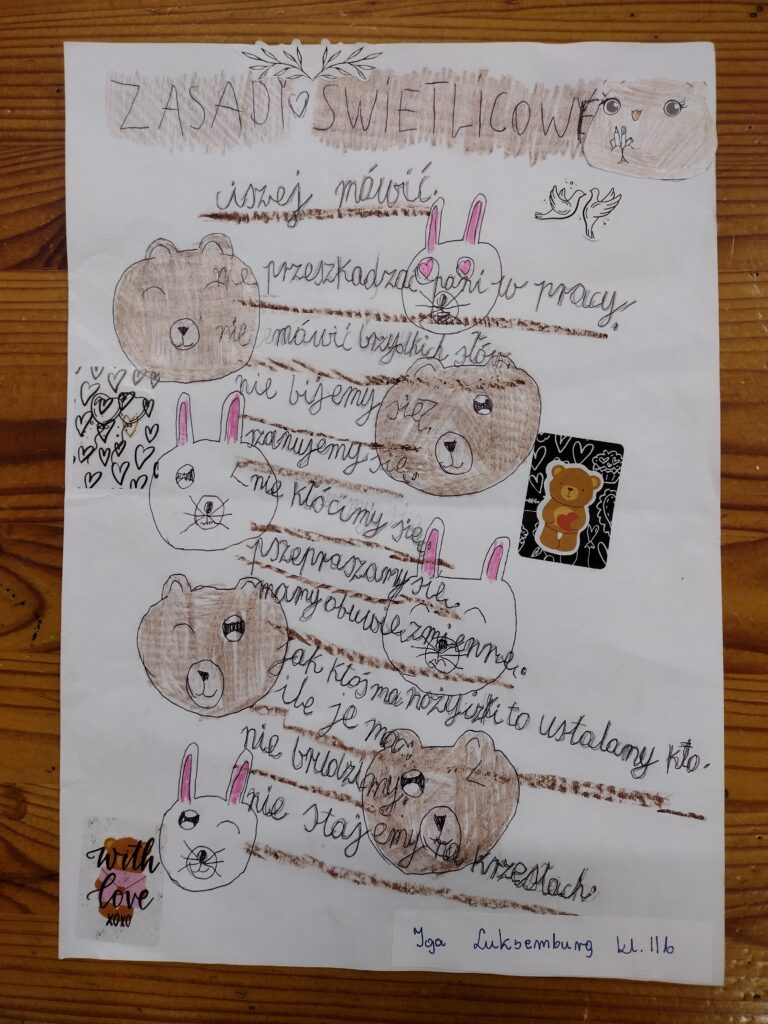 ZASADI ŚWIETLICOWE
ciszej mówić.
nie przeszkadzać pani w pracy.
nie mówić brzydkich słów.
nie bijemy się.
szanujemy się.
nie kłócimy się.
pszepraszamy się.
mamy obuwie zmienne.
jak ktoś ma nożyczki to ustalamy kto.
ile je ma.
nie brudzimy.
nie stajemy na krzesłach.
with
love
XOXO
Iga Luksemburg kl. IIb